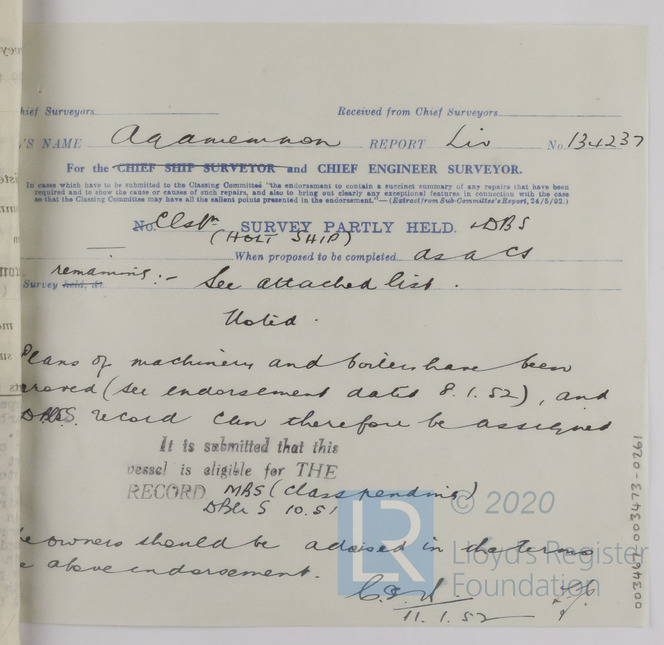 hief Surveyors
Received from Chief Surveyors
'S NAME Agamemnon REPORT Liv No. 134237
For the CHIEF SHIP SURVEYOR and CHIEF ENGINEER SURVEYOR.
In cases which have to be submitted to the Classing Committee "the endorsement to contain a succinct summary of any repairs that have been
required and to show the cause or causes of such repairs, and also to bring out clearly any exceptional features in connection with the case
so that the Classing Committee may have all the salient points presented in the endorsement."—(Extract from Sub-Committee's Report, 24/5/92.)
No. SURVEY PARTLY HELD. + DBS
(HOLT SHIP)
When proposed to be completed as a CS
remaining :-
Survey held, &c. See attached list.
Noted.
Plans of machinery and boilers have been
proved (see endorsement dated 8.1.52), and
record can therefore be assigned
It is submitted that this
vessel is eligible for THE
RECORD MBS (Class pending)
DBlr S 10.51
e owners should be advised in the terms
e above endorsement.
11.1.52
LR © 2020
Lloyd's Register
Foundation
003467-003473-0261